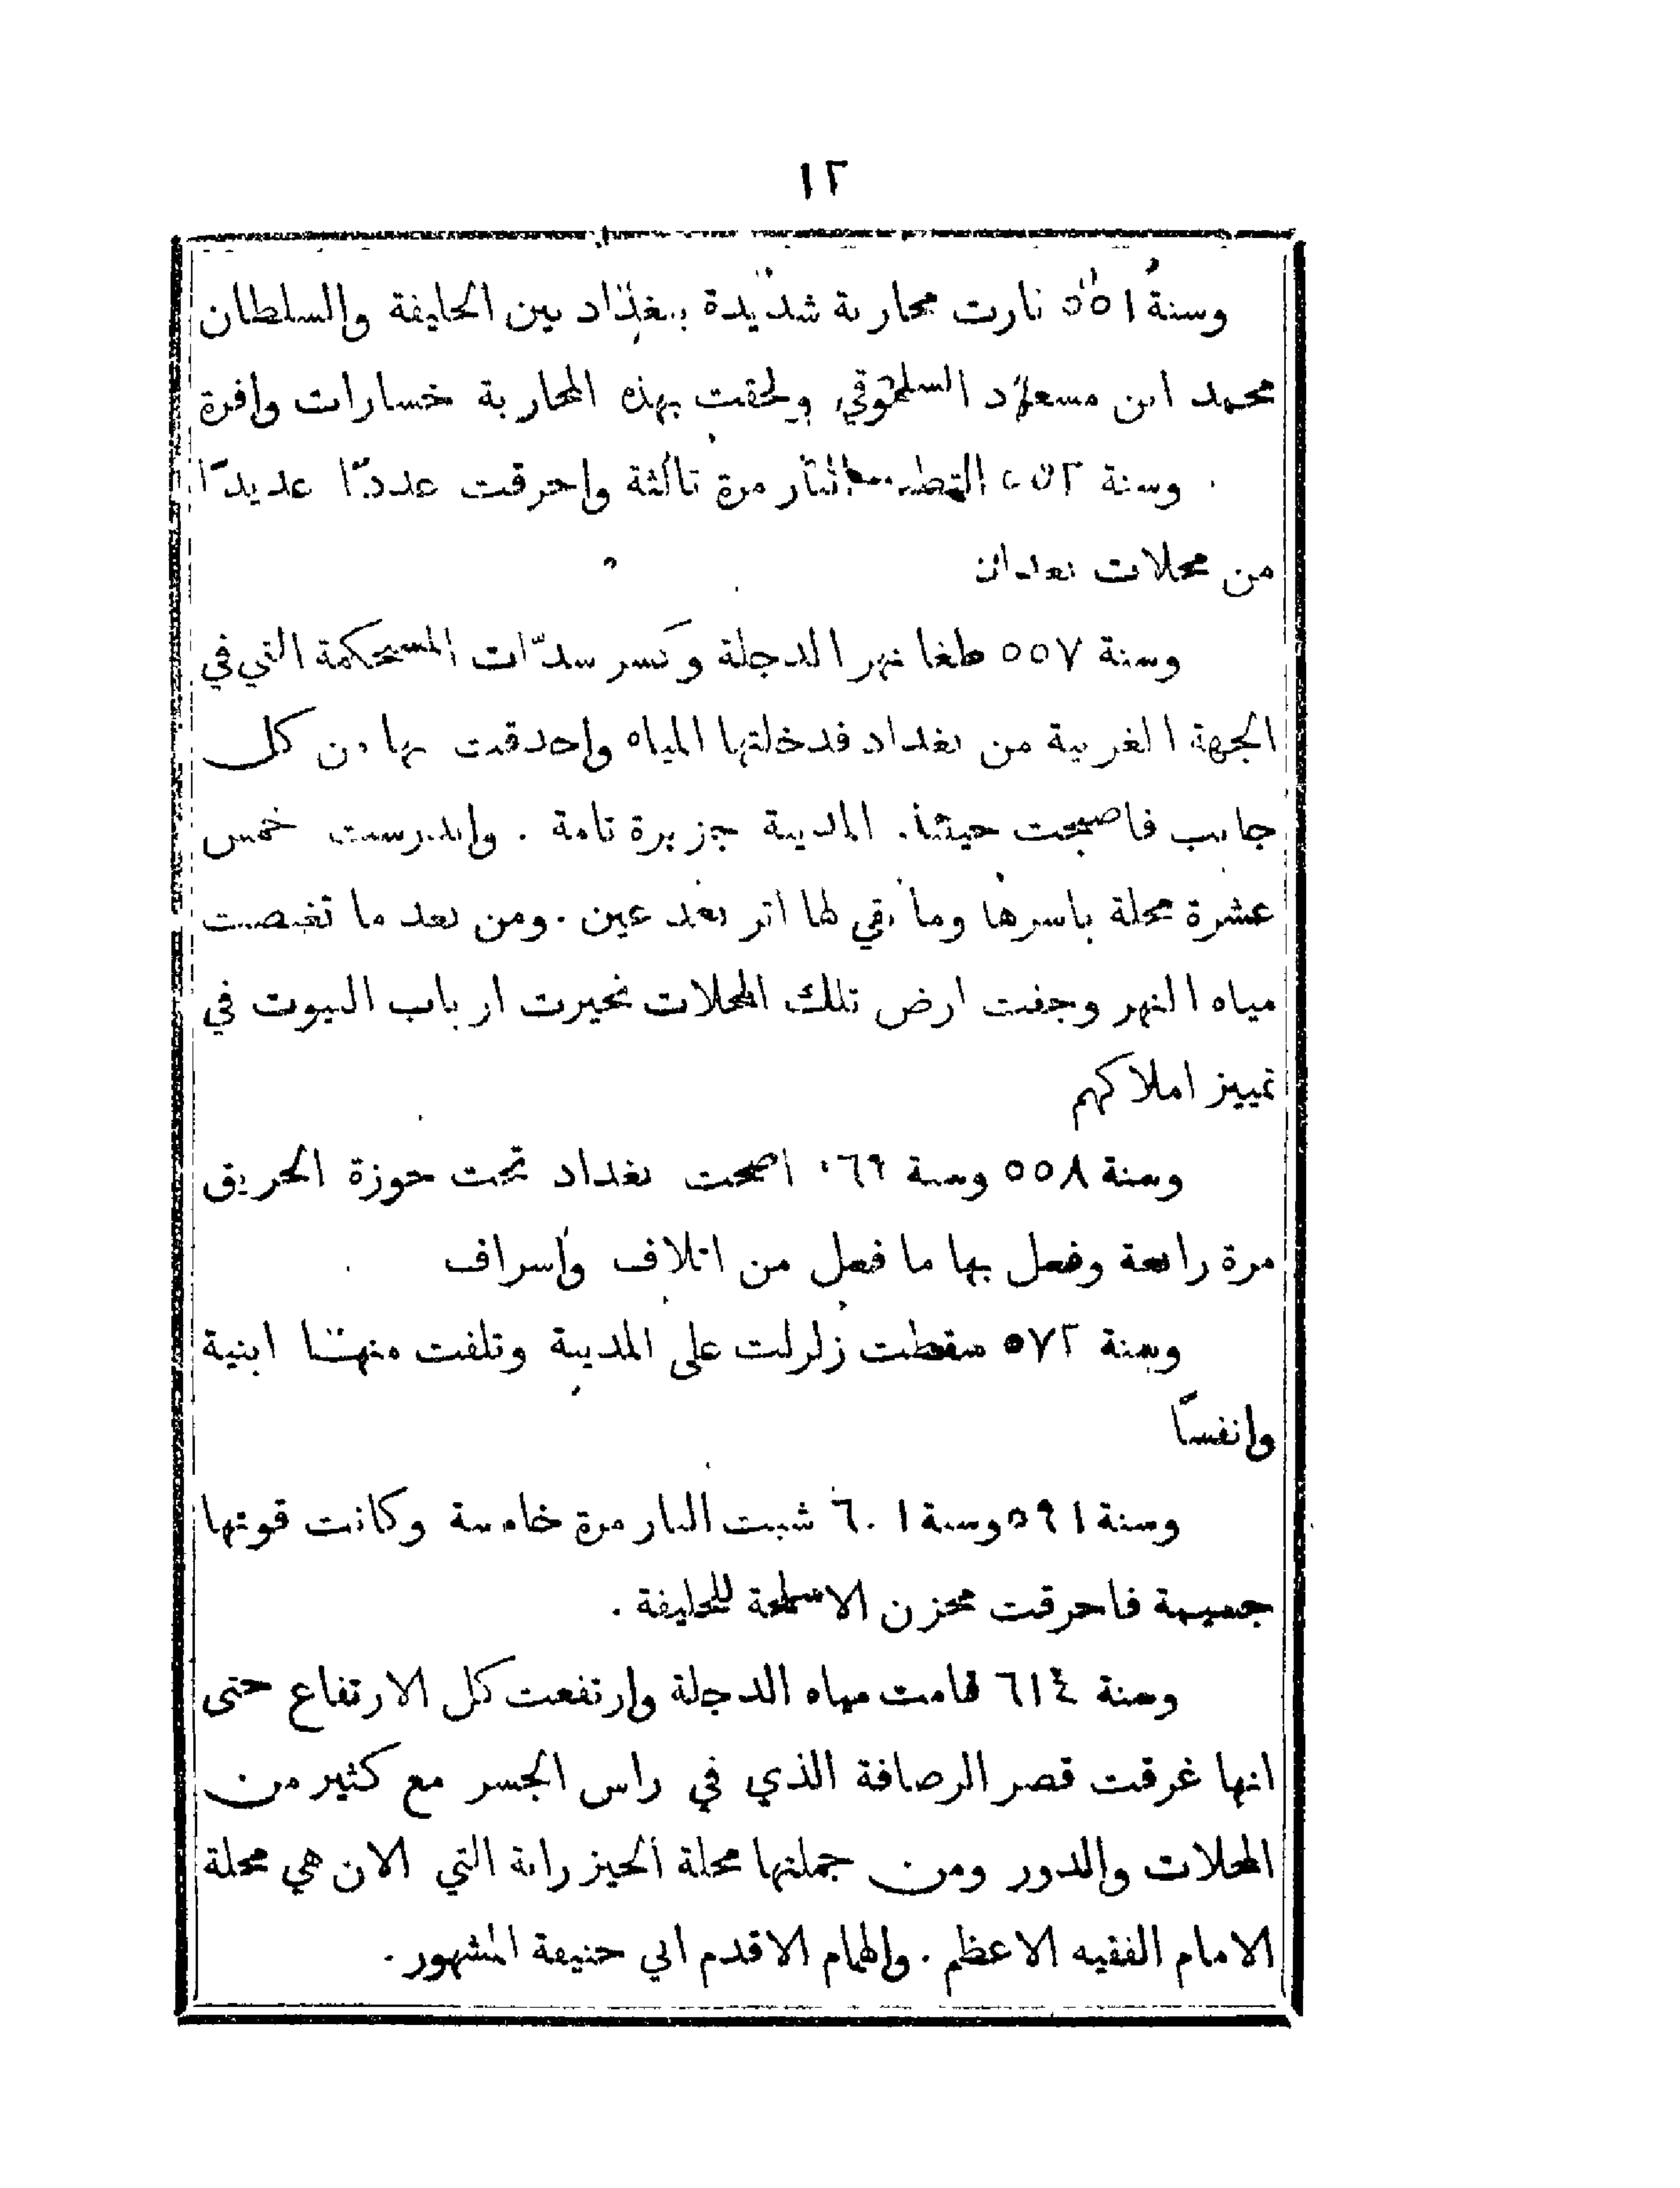 ١٢
وسنة ٥٥١ ثارت محاربة شديدة ببغداد بين الخليفة والسلطان
محمد ابن مسعود السلجوقي ولحقت بهذه المحاربة خسارات وافرة
وسنة ٥٥٢ التطت النار مرة ثالثة واحرقت عددًا عديدًا
من محلات بغداد
وسنة ٥٥٧ طغا نهر الدجلة وكسر سدّات المستحكمة التي في
الجهة الغربية من بغداد فدخلتها المياه واحدقت بها من كل
جانب فاصبحت حينئذ المدينة جزيرة تامة . واندرست خمس
عشرة محلة باسرها وما بقي لها اثر بعد عين . ومن بعد ما تغيصت
مياه النهر وجفت ارض تلك المحلات تحيرت ارباب البيوت في
تمييز املاكهم
وسنة ٥٥٨ وسنة ٥٦٩ اصبحت بغداد تحت حوزة الحريق
مرة رابعة وفعل بها ما فعل من اتلاف واسراف
وسنة ٥٧٢ سقطت زلزلت على المدينة وتلفت منها ابنية
وانفسًا
وسنة ٥٩١ وسنة ٦٠١ شبت النار مرة خامسة وكانت قوتها
جسيمة فاحرقت مخزن الاسلحة للخليفة .
وسنة ٦١٤ قامت مياه الدجلة وارتفعت كل الارتفاع حتى
انها غرقت قصر الرصافة الذي في راس الجسر مع كثير من
المحلات والدور ومن جملتها محلة الخيزرانة التي الان هي محلة
الامام الفقيه الاعظم . والهمام الاقدم ابي حنيفة المشهور .